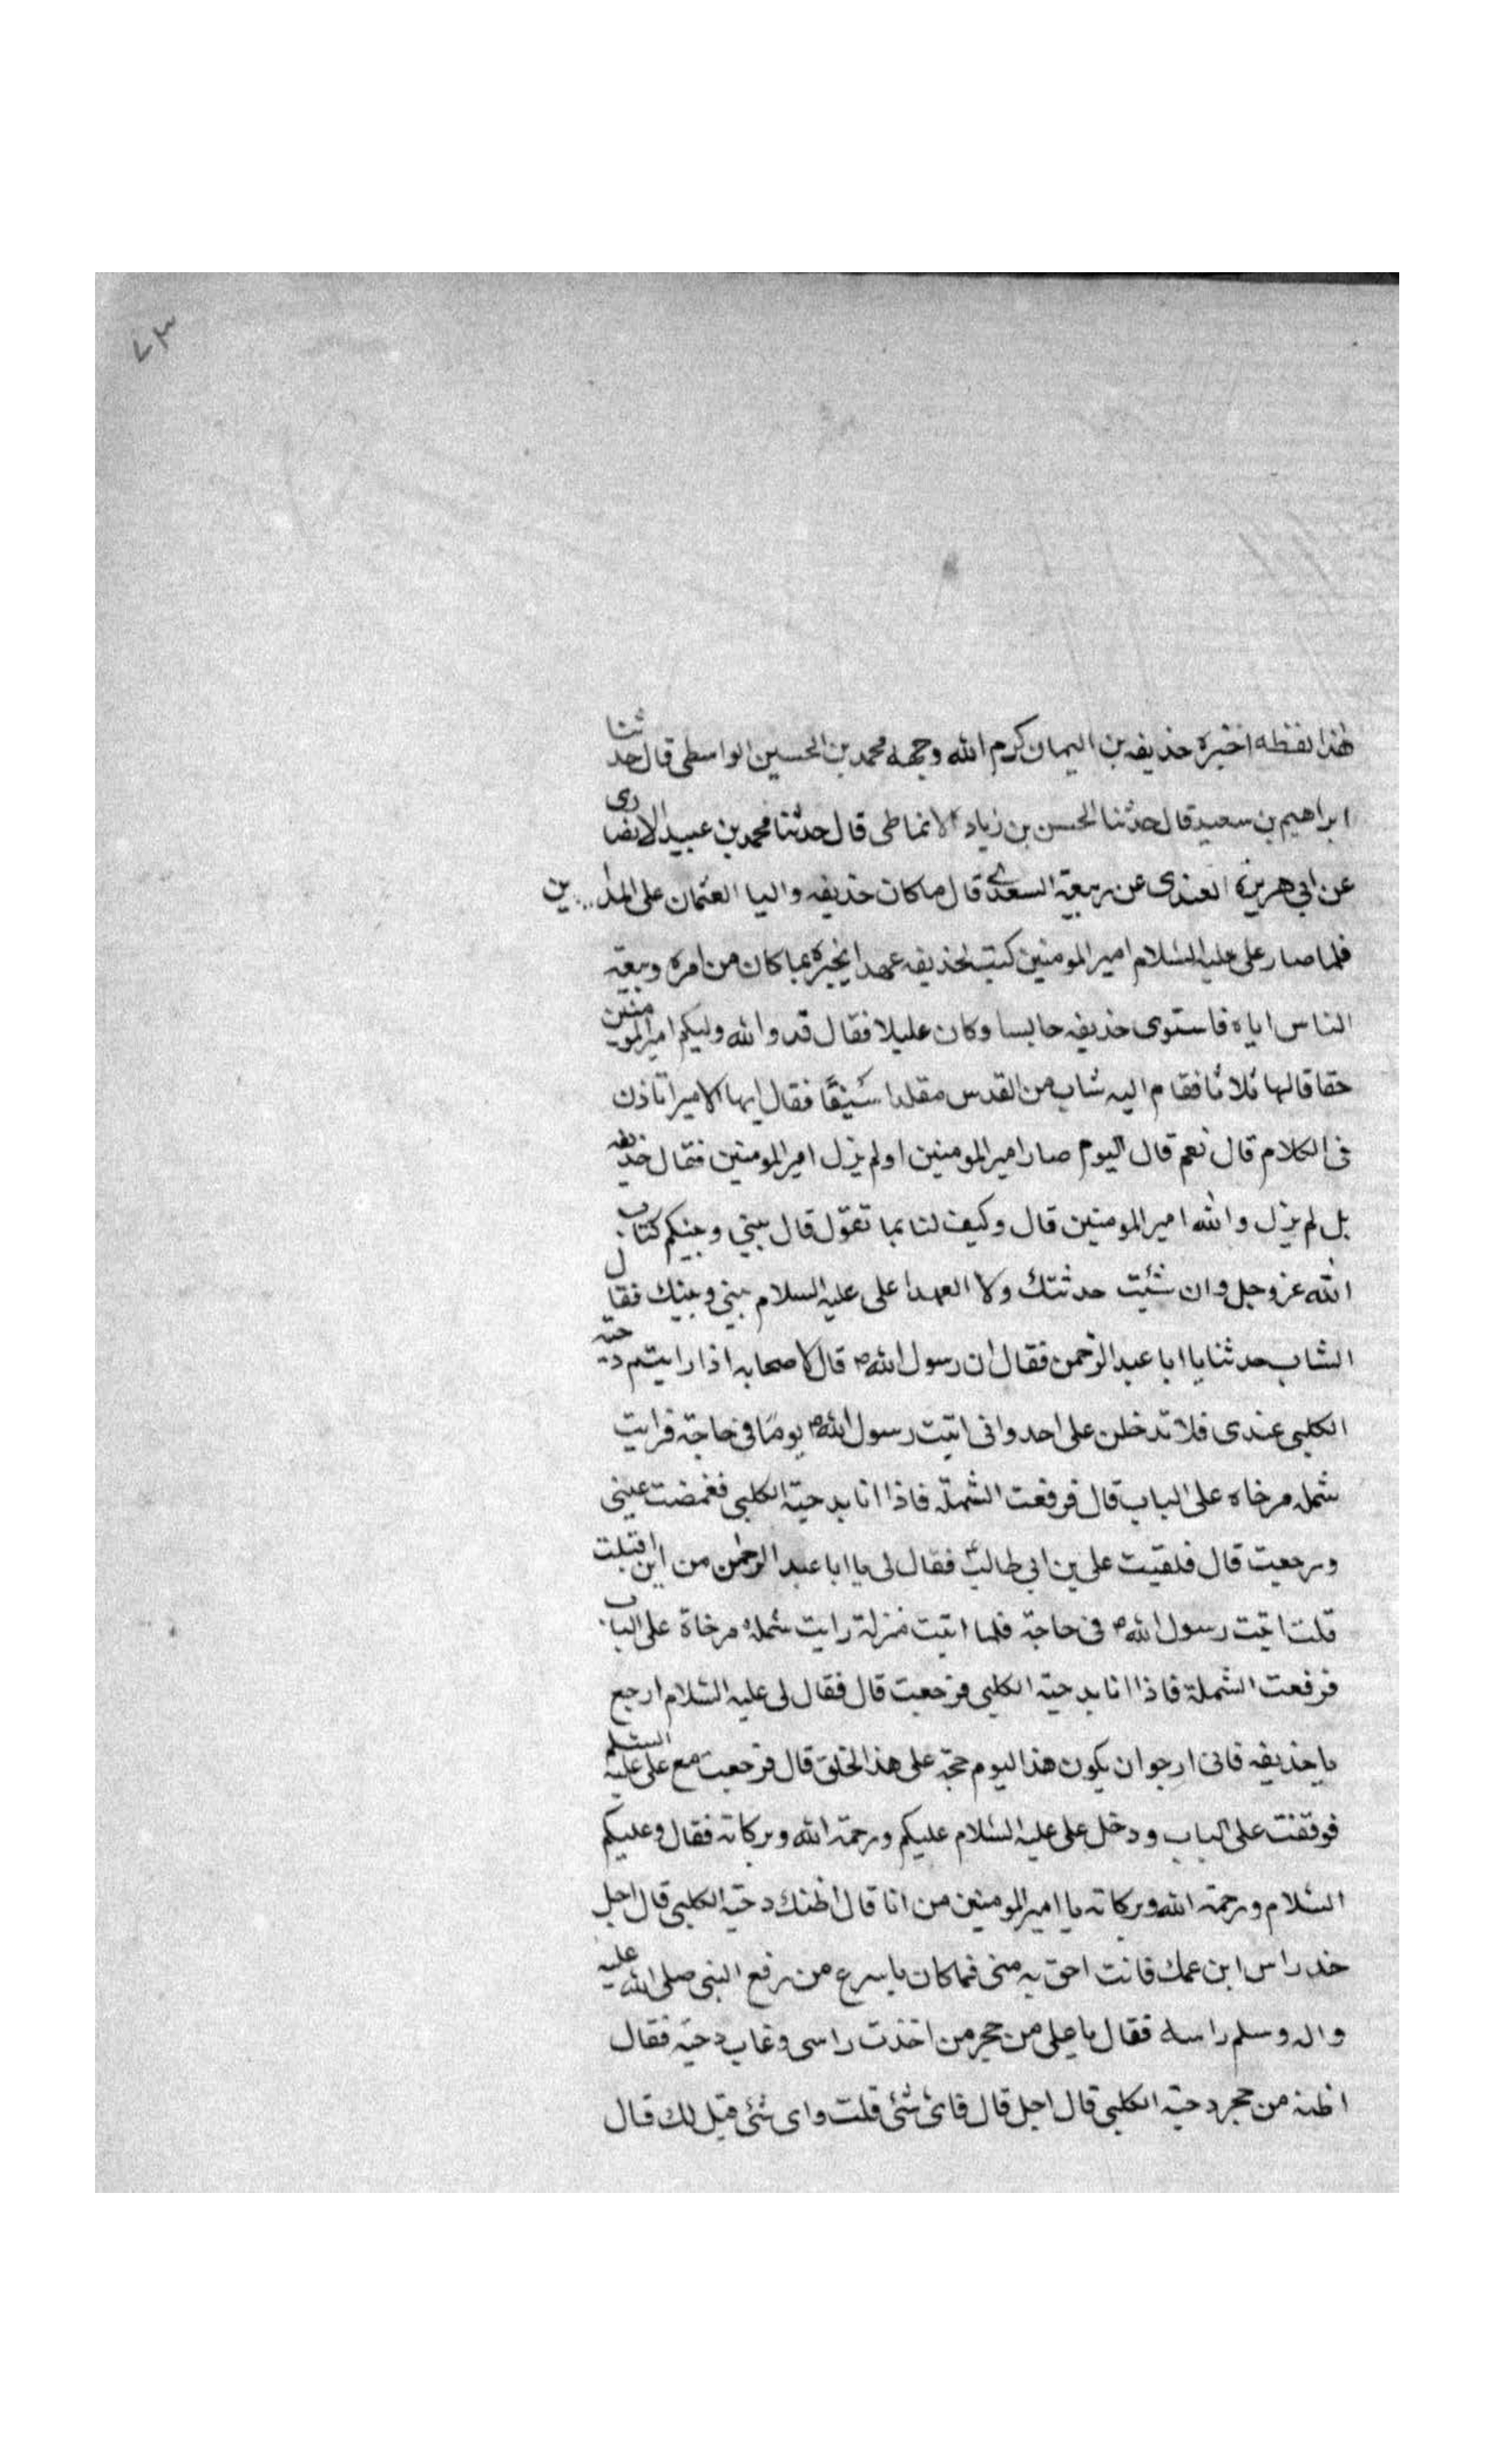 ٧٣
هذا لفظه اخبره حذيفه بن اليمان كرم الله وجهه محمد بن الحسين الواسطى قال حدثنا
ابراهيم بن سعيد قال حدثنا الحسن بن زياد الانماطى قال حدثنا محمد بن عبيد الانصارى
عن ابي هريرة العبدى عن ربيعة السعدى قال ما كان حذيفه واليا العثمان على المداين
فلما صار على عليه السلام امير المومنين كتب لحذيفه عهدا يخبره بما كان من امره وبيعة
الناس اياه فاستوى حذيفه جالسا وكان عليلا فقال قد والله وليكم امير المومنين
حقا قالها ثلاثا فقام اليه شاب من القدس مقلدا سيفا فقال ايها الامير اتاذن
فى الكلام قال نعم قال اليوم صار امير المومنين او لم يزل امير المومنين فقال حذيفه
بل لم يزل والله امير المومنين قال وكيف لنا بما تقول قال بيني وبينكم كتاب
الله عز وجل وان شئت حدثتك ولا العهدا على عليه السلام بيني وبينك فقال
الشاب حدثنا يا ابا عبد الرحمن فقال ان رسول الله ص قال لاصحابه اذا رايتم دحية
الكلبى عندى فلا تدخلن على احد وانى اتيت رسول الله ص يوما فى حاجة فرايت
شمله مرخاه على الباب قال فرفعت الشملة فاذا انا بدحية الكلبى فغمضت عينى
ورجعت قال فلقيت على بن ابى طالب فقال لى يا ابا عبد الرحمن من اين اقبلت
قلت اتيت رسول الله ص فى حاجة فلما اتيت منزلة رايت شملة مرخاة على الباب
فرفعت الشملة فاذا انا بدحية الكلبى فرجعت قال فقال لى عليه السلام ارجع
يا حذيفه فانى ارجو ان يكون هذا اليوم حجة على هذ الخلق قال فرجعت مع على عليه السلم
فوقفت على الباب ودخل على عليه السلام عليكم ورحمة الله وبركاته فقال وعليكم
السلام ورحمة الله وبركاته يا امير المومنين من انا قال اظنك دحية الكلبى قال اجل
خذ راس ابن عمك فانت احق به منى فما كان باسرع من رفع النبى صلى الله عليه
واله وسلم راسه فقال يا على من حجر من اخذت راسى وغاب دحية فقال
اظنه من حجر دحية الكلبى قال اجل قال فاى شئ قلت واى شئ قيل لك قال